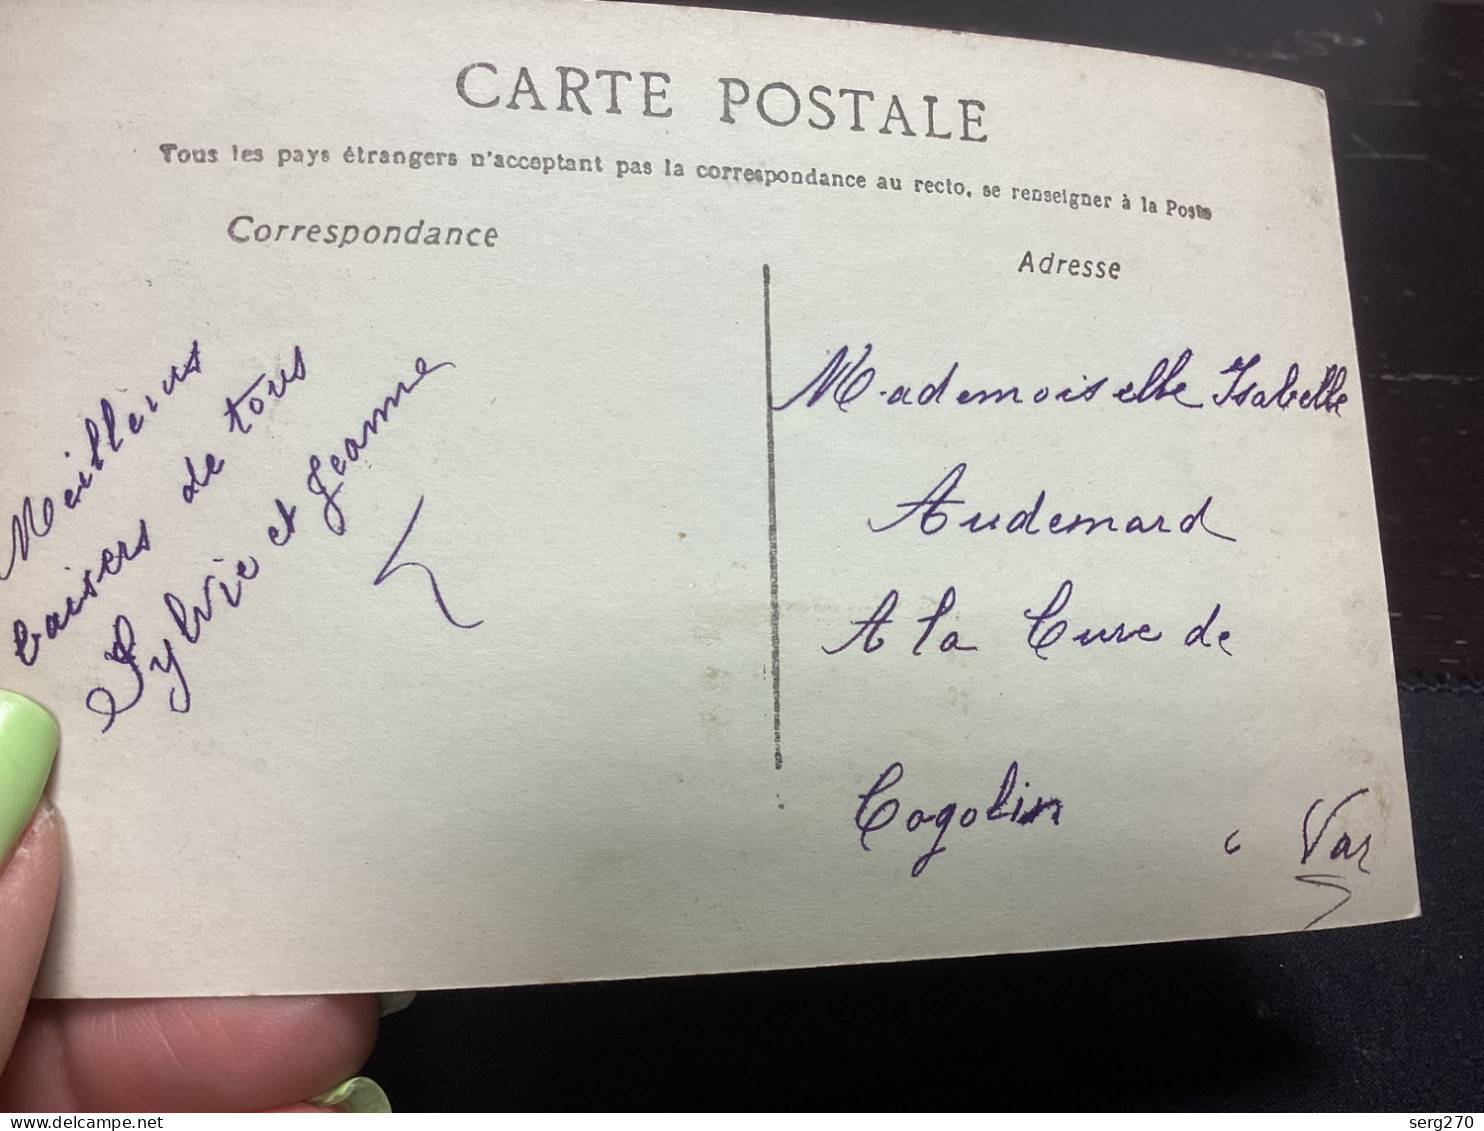 CARTE POSTALE
Tous les pays étrangers n'acceptant pas la correspondance au recto, se renseigner à la Poste
Correspondance
Meilleurs
baisers de tous
Sylvie et Jeanne
Adresse
Mademoiselle Isabelle
Audemard
A la Cure de
Cogolin
Var
serg270